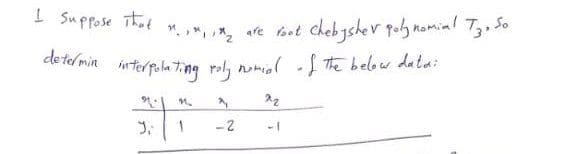 1 Suppose that x₀, x₁, x₂ are root chebyshev polynomial T₃, So
determin interpolating polynomial of the below data:
xᵢ | x₀ x₁ x₂
yᵢ | 1 -2 -1